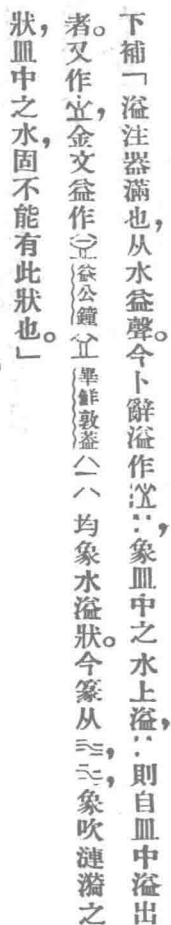 下補「溢注器滿也，从水益聲。今卜辭溢作，象皿中之水上溢，則自皿中溢出
者。又作，金文益作益公鐘畢鮮敦蓋八一八均象水溢狀。今篆从，象吹漣漪之
狀，皿中之水，固不能有此狀也。」